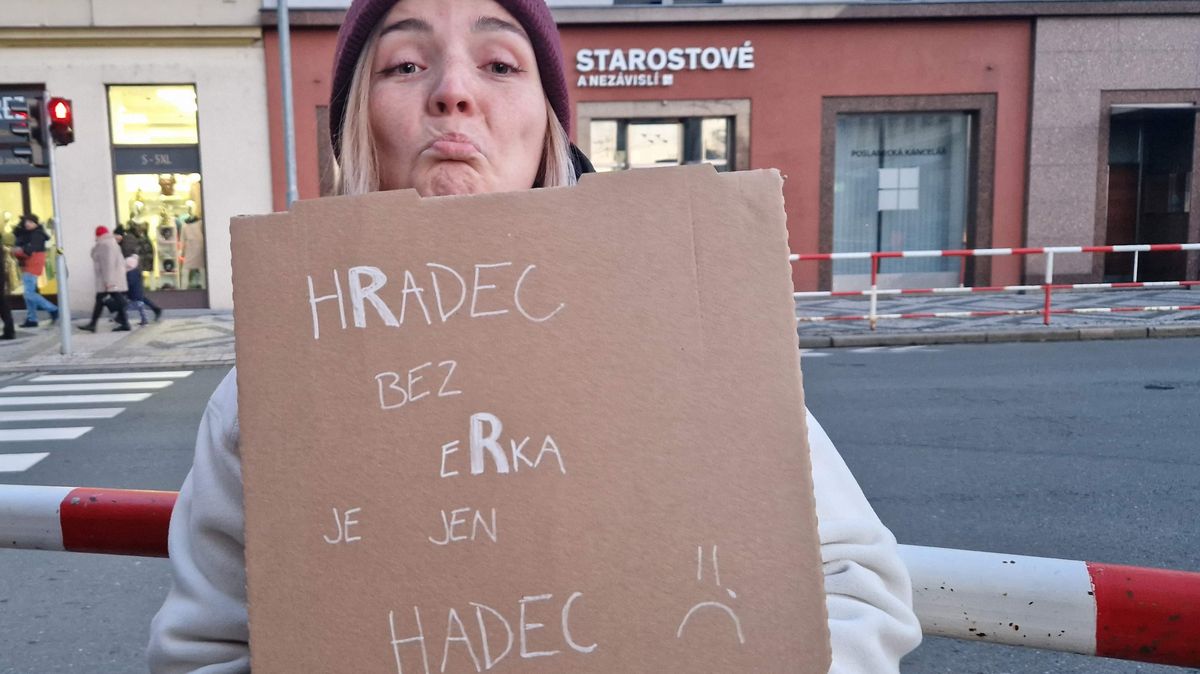 STAROSTOVÉ
A NEZÁVISLÍ
S - 5XL
POSLANECKÁ KANCELÁŘ
HRADEC
BEZ
eRKA
JE JEN
HADEC